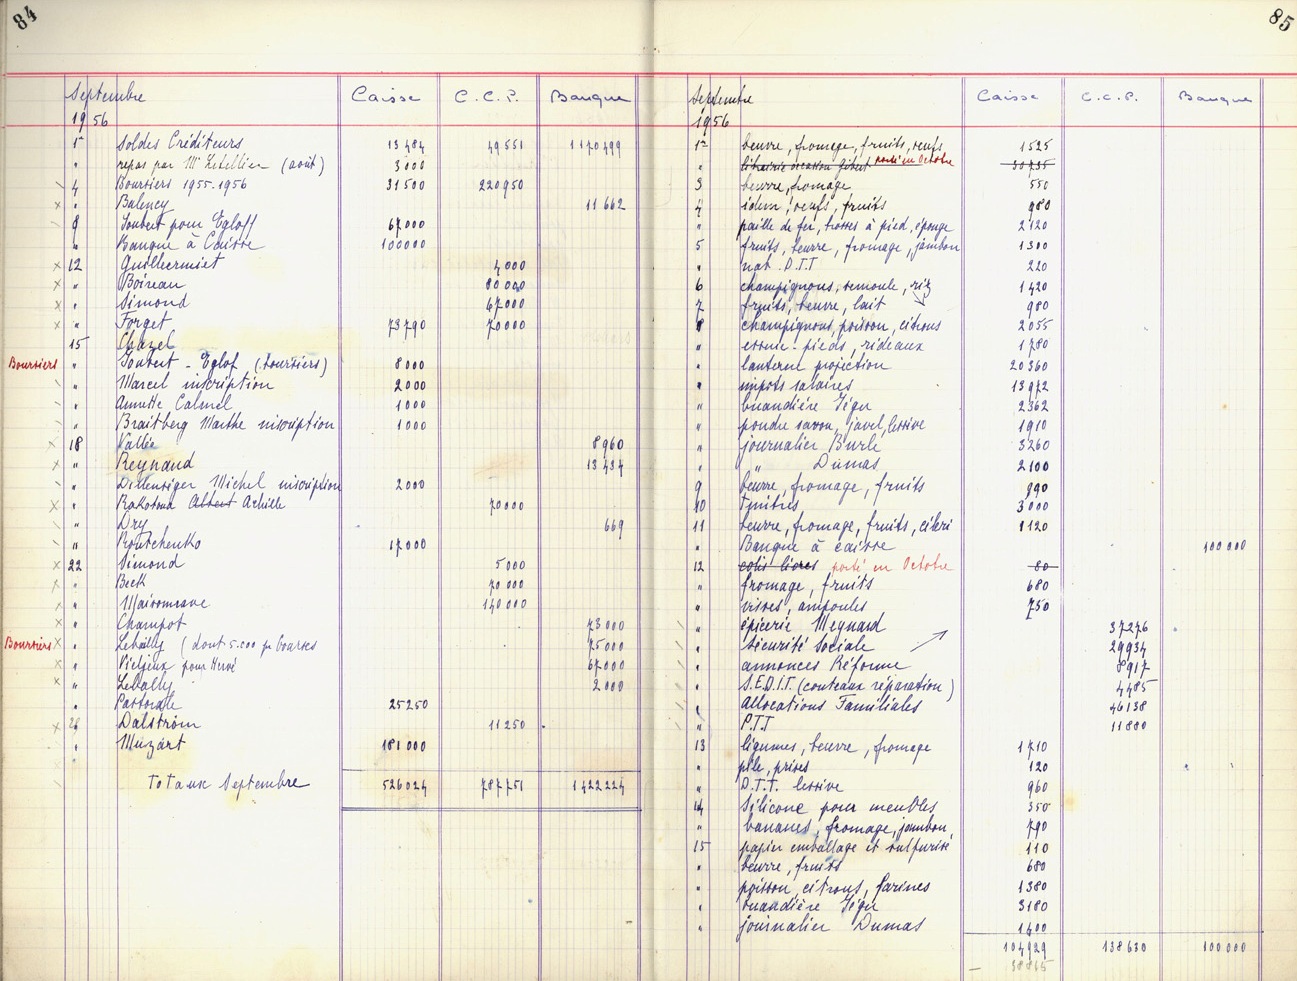 84
Septembre Caisse C.C.P. Banque
1956
1er Soldes Créditeurs 13484 49551 1170499
" repas par Mr Letellier (août) 3000
4 Boursiers 1955-1956 31500 220950
" Balency 11662
8 Joubert pour Egloff 67000
" Banque à Caisse 100000
12 Guillerminet 4000
" Boireau 80000
" Simond 67000
" Forget 73790 70000
15 Chazel
Boursiers " Joubert - Eglof (boursiers) 8000
" Marcel inscription 2000
" Annette Calmel 1000
" Braitberg Marthe inscription 1000
18 Vallée 8960
" Reynaud 13434
" Michel inscription 2000
" Albert Achille 70000
" Dry 669
" 17000
22 Simond 5000
" Beck 70000
" 140000
" Champot 73000
Boursiers " Lebailly (dont 5.000 pr bourses 75000
" Vieljeux pour Hervé 67000
" 2000
" Pastorale 25250
28 Dalström 11250
" Muzart 181000
Totaux Septembre 526024 787751 1422224
85
Septembre Caisse C.C.P. Banque
1956
1er beurre, fromage, fruits, oeufs 1525
" librairie occasion Gibert porté en Octobre 30735
3 beurre, fromage 550
4 idem, oeufs, fruits 980
" paille de fer, brosses à pied, éponge 2120
5 fruits, beurre, fromage, jambon 1300
" D.T.T 220
6 champignons, semoule, riz 1420
7 fruits, beurre, lait 980
8 champignons, poisson, citrons 2055
" essuie-pieds, rideaux 1780
" lanterne projection 20360
" impôts salaires 13972
" buandière Jégu 2362
" poudre savon, javel, lessive 1910
" journalier Burlé 3260
" " Dumas 2100
9 beurre, fromage, fruits 990
10 Timbres 3000
11 beurre, fromage, fruits, céleri 1120
" Banque à caisse 100000
12 colis livres porté en Octobre 80
" fromage, fruits 680
" visses, ampoules 750
" épicerie Meynard 37276
" Sécurité Sociale 29934
" annonces Réforme 8917
" S.E.D.I.T. (couteaux réparation) 4485
" Allocations Familiales 46138
" P.T.T 11880
13 légumes, beurre, fromage 1710
" pile, prises 120
" D.T.T. lessive 960
14 Silicone pour meubles 350
" bananes, fromage, jambon, 790
15 papier emballage et sulfurisé 110
" beurre, fruits 680
" poisson, citrons, farines 1380
" buandière Jégu 3180
" journalier Dumas 1400
104929 138630 100000